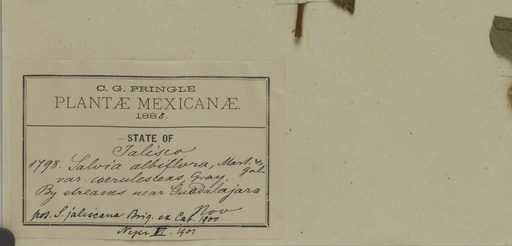 C. G. PRINGLE
PLANTÆ MEXICANÆ.
1888.
STATE OF
Jalisco
1798. Salvia albiflora, Mart. & Gal.
var. coerulescens, Gray.
By streams near Guadalajara
Nov
pos. S. jaliscana Briq. ex Cat. 1900
VI. 1901